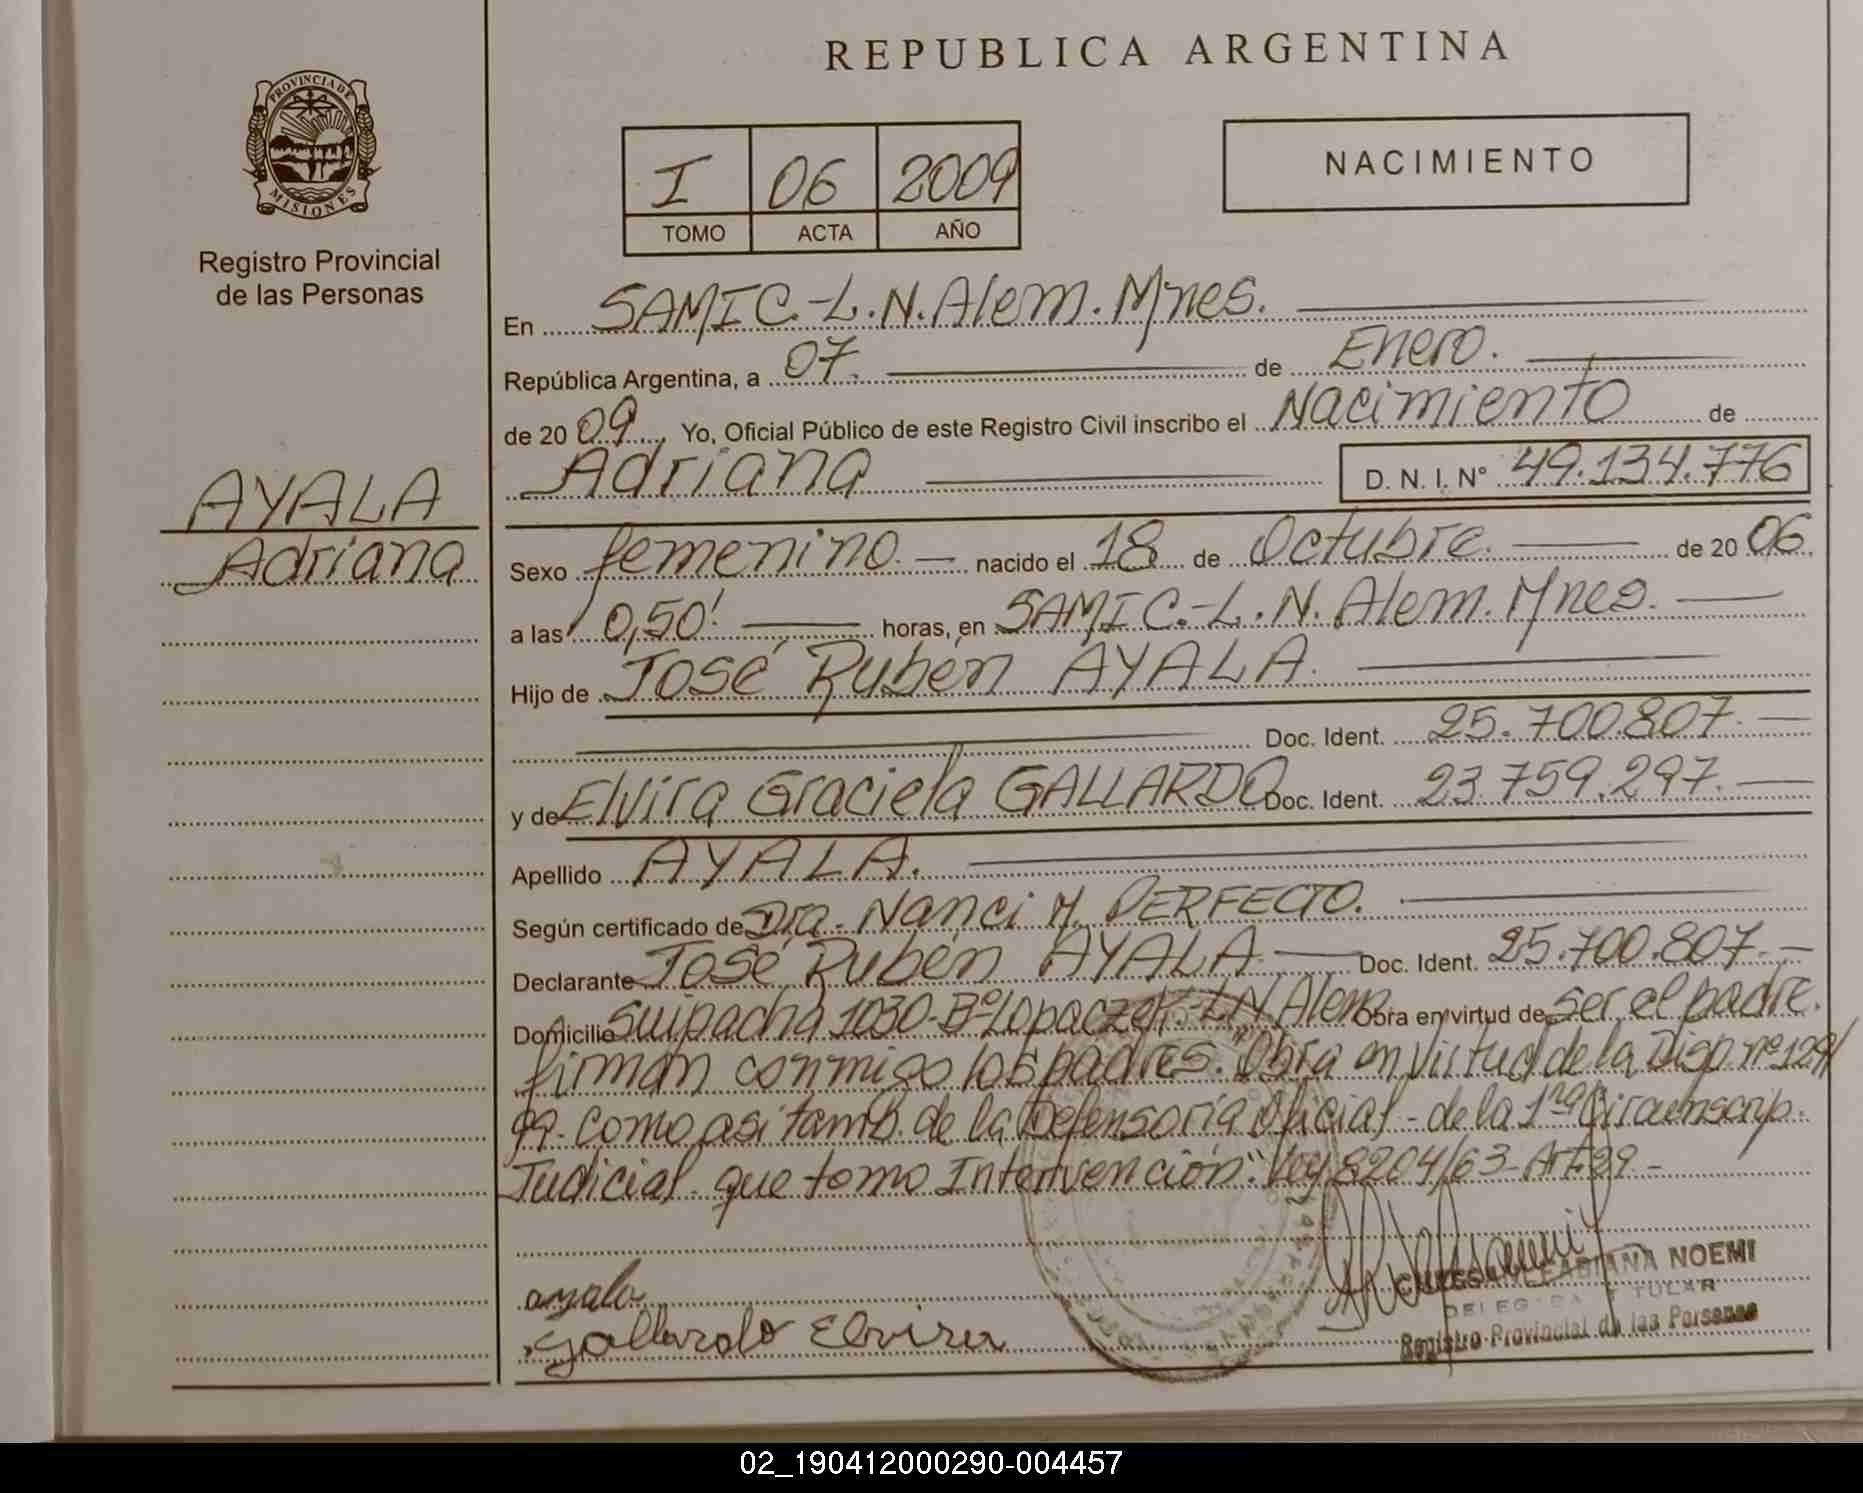 REPUBLICA ARGENTINA
PROVINCIA DE
MISIONES
Registro Provincial
de las Personas
I 06 2009
TOMO ACTA AÑO
NACIMIENTO
En SAMIC.-L.N.Alem.Mnes.
República Argentina, a 07. de Enero.
de 20 09, Yo, Oficial Público de este Registro Civil inscribo el Nacimiento de
Adriana D. N. I. Nº 49.134.776
AYALA
Adriana
Sexo femenino. nacido el 18 de Octubre. de 20 06
a las 0,50' horas, en SAMIC.-L.N.Alem.Mnes.
Hijo de José Rubén AYALA.
Doc. Ident. 25.700.807.
y de Elvira Graciela GALLARDO Doc. Ident. 23.759.297.
Apellido AYALA.
Según certificado de Dra. Nanci M. PERFECTO.
Declarante José Rubén AYALA Doc. Ident. 25.700.807.
Domicilio Suipacha 1030-Bº Lopaczek.-LN Alem Obra en virtud de ser el padre.
firman conmigo los padres. "Obra en virtud de la Disp nº 129/
99. como asi tamb. de la Defensoría Oficial - de la 1ra Circunscrip.
Judicial. que tomo Intervención". Ley 8204/63-Art.29-
ayala
Gallardo Elvira
FABIANA NOEMI
DELEGADA TITULAR
Registro Provincial de las Personas
02_190412000290-004457